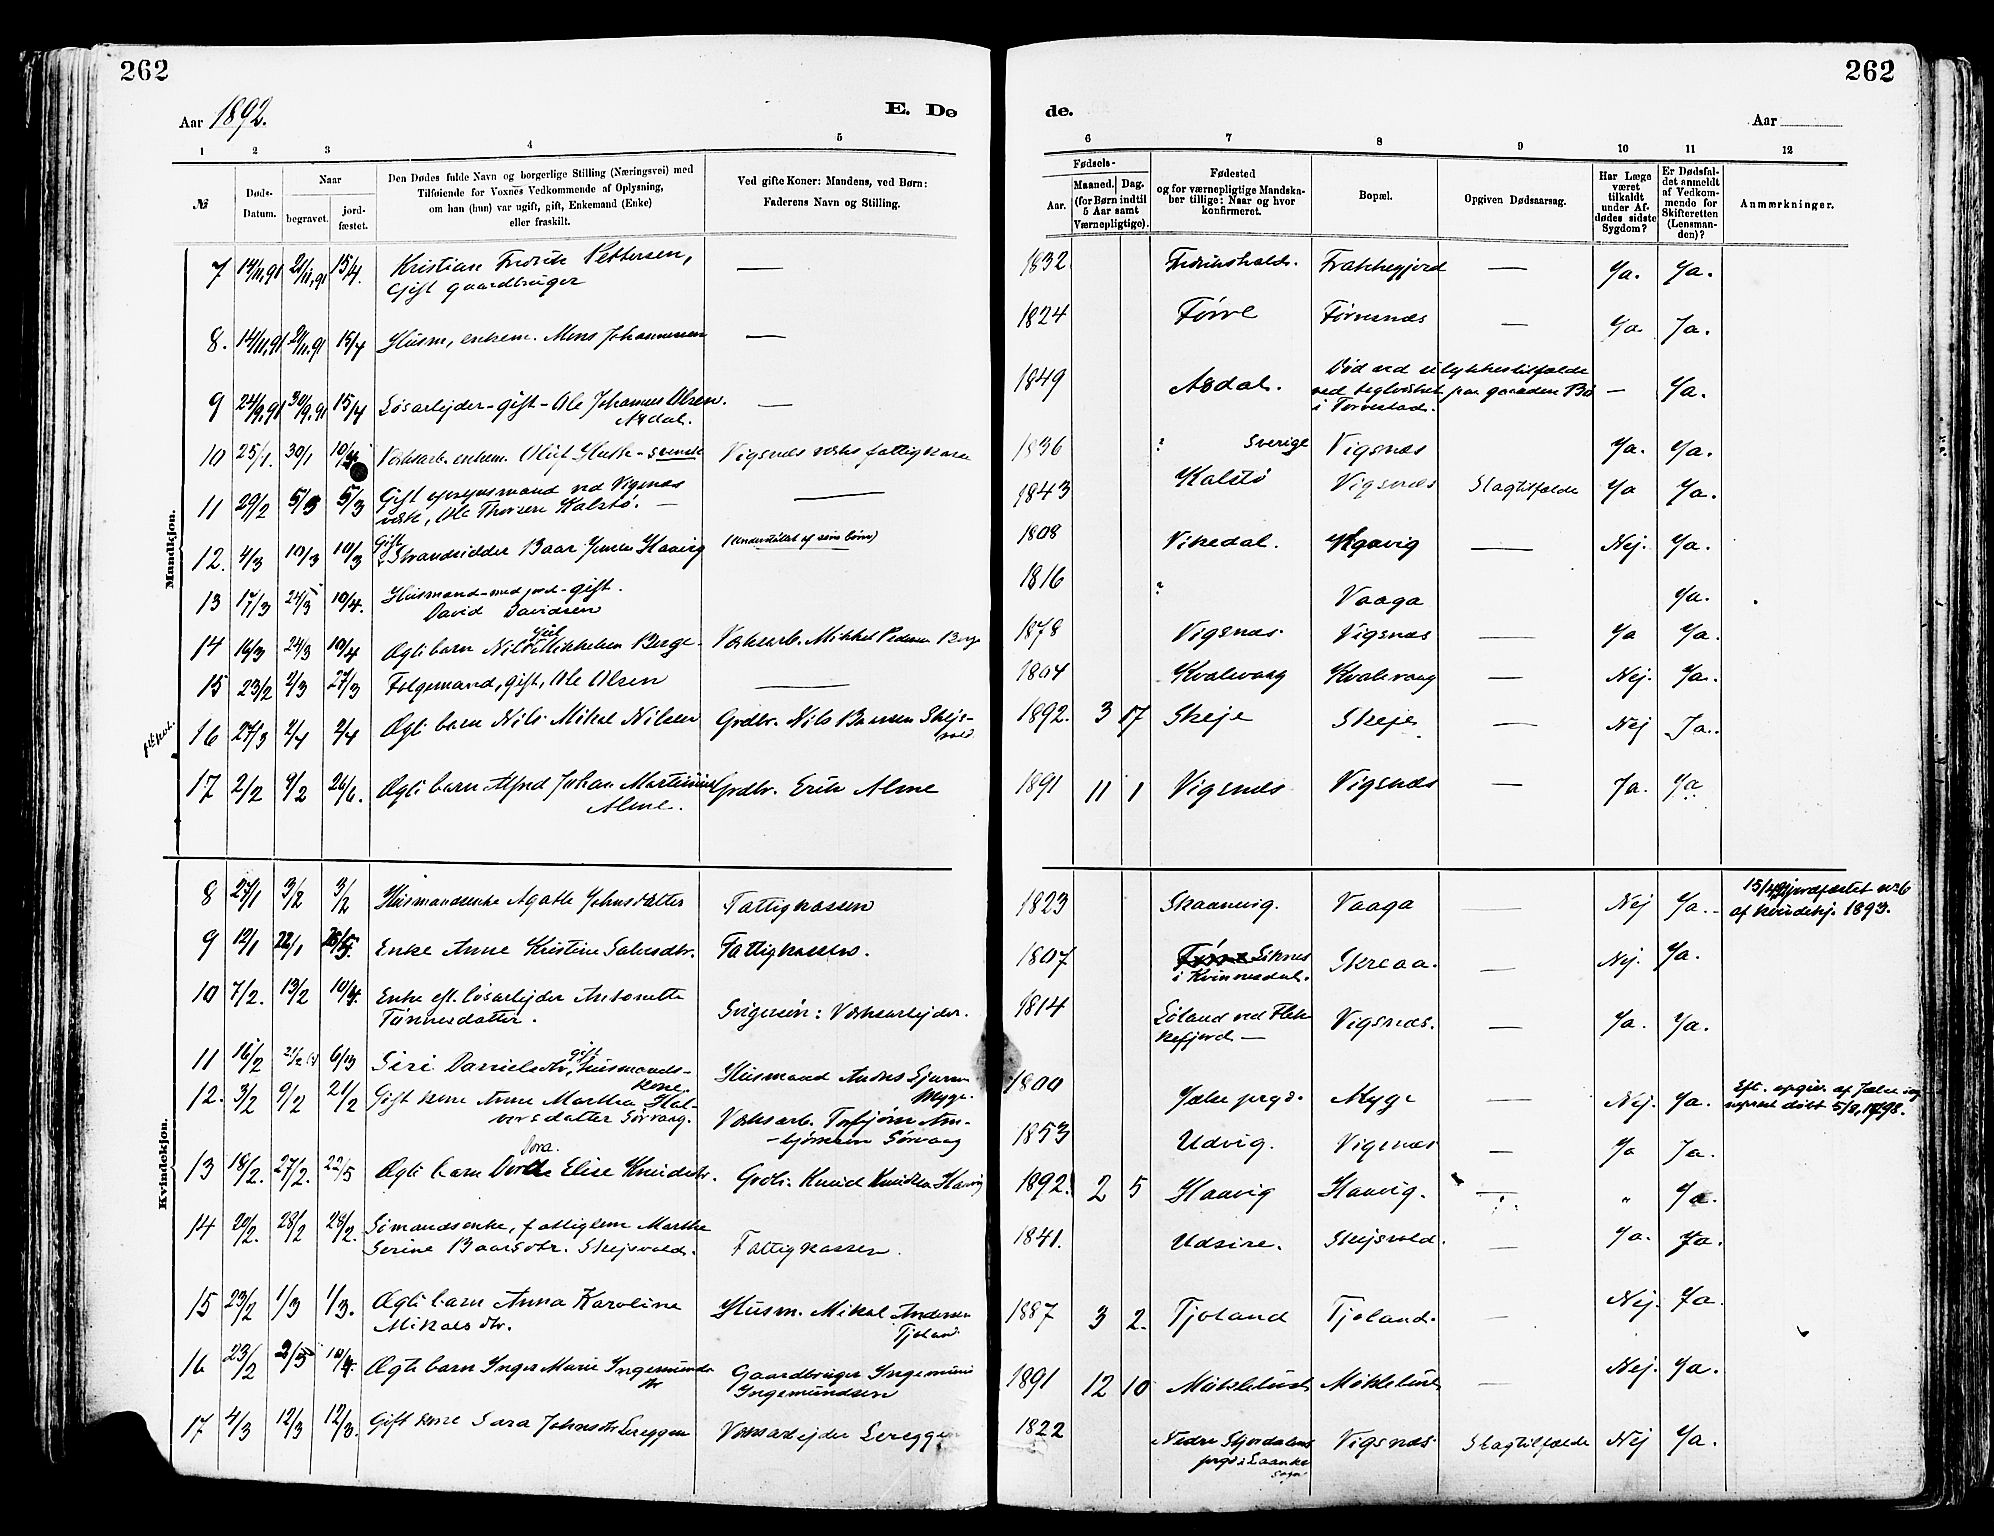 262
262
Aar 1892.
E. Dø
de.
Aar
1 2 3 4 5
6 7 8 9 10 11 12
№
Døds-Datum.
Naar
begravet.
jord-fæstet.
Den Dødes fulde Navn og borgerlige Stilling (Næringsvei) med
Tilføiende for Voxnes Vedkommende af Oplysning,
om han (hun) var ugift, gift, Enkemand (Enke)
eller fraskilt.
Ved gifte Koner: Mandens, ved Børn:
Faderens Navn og Stilling.
Fødsels-
Aar.
Maaned. Dag.
(for Børn indtil
5 Aar samt
Værnepligtige).
Fødested
og for værnepligtige Mandska-
ber tillige: Naar og hvor
konfirmeret.
Bopæl.
Opgiven Dødsaarsag.
Har Læge
været
tilkaldt
under Af-
dødes sidste
Sygdom?
Er Dødsfal-
det anmeldt
af Vedkom-
mende for
Skifteretten
(Lensman-
den)?
Anmærkninger.
Mandkjøn.
7 14/11,91 21/11,91 15/4. Kristian Fredrik Pettersen, — 1832 Fredrikshald. — Ja. Ja.
Gift gaardbruger
8. 14/11,91 21/11.91 15/4 Husm, enkem. Mons Johannessen — 1824 Førre Førresnæs — Ja. Ja.
9 24/9.91 30/9.91 15/4 Løsarbejder-gift-Ole Johannes Olsen — 1849 Aasdal. Død ved ulykkestilfælde — Ja.
Asdal.
ved teglværket paa gaarden Bø
i Torvestad.
10 25/1. 30/1 10/4 enkem. Oluf svensk Vigsnæs værks fattigkasse 1836 ? Sverige Vigsnæs Ja. Ja.
11 29/2 5/3 5/3 Gift opsynsmand ved Vigsnæs — 1843 Kalstø Vigsnæs Slagtilfælde Ja Ja.
værk, Ole Thorsen Kalstø. —
12. 4/3 10/3 10/3 Gift Strandsidder Baar Jensen Haavig (Understøttet af sine børn) 1808 Vikedal. Haavig — Nej. Ja.
13 17/3 24/3 10/4. Husmand-med jord-gift. 1816 ? Vaaga Ja.
David Davidsen
14 16/3 24/3 10/4 Ægte barn Nils Mikkelsen Berge Værksarb. Mikkel Pedersen Berge 1878 Vigsnæs. Vigsnæs — Ja Ja.
15 23/2 2/3 27/3 Følgemand, gift, Ole Olsen — 1804 Kvalevaag Kvalevaag — Nej. Ja.
16 27/3 2/4 2/4 Ægte barn Nils Mikal Nilsen Grdbr. Nils Baarsen Skejs-
vold 1892. 3 17 Skeje Skeje — Nej Ja.
17 2/2 9/2 26/6. Ægte barn Alfred Johan Martinius Grdbr. Erik Alme 1891 11 1 Vigsnæs Vigsnæs — Ja. Ja
Alme.
Kvindekjøn.
8 27/1 3/2 3/2 Husmandsenke Agathe Johnsdatter Fattigkassen 1823 Skaanevig. Vaaga — Nej Ja. 15/4 jordfæstet nr 6
af kvindekj. 1893.
9 12/1 22/1 Enke Anne Kristine Salvesdtr. Fattigkassen. 1807 Liknes Skreaa. — Nej. Ja.
i Kvinnesdal.
10 7/2. 13/2 10/4. Enke eft. løsarbejder Antonette Svigersøn: Værksarbejder. 1814 Løland ved Flek- Vigsnæs. — Ja. Ja.
Tønnesdatter.
kefjord —
11 16/2 6/3 Siri Danielsdtr, gift husmands-
kone. Husmand Anders
Myge. 1800 Jælse prgd. Myge — Nej. Ja. Eft. opgiv. af Jælse
døbt 5/8,1798.
12. 3/2 9/2 21/2 Gift kone Anne Martha Hal-
vorsdatter Sørvaag. Værksarb. Torbjørn Am-
bjørnsen Sørvaag 1853 Udvig. Vigsnæs — Ja Ja.
13 18/2. 27/2. 22/5 Ægte barn Dora. Elise Knudsdtr. Grdbr. Knud Knudsen Haavig 1892. 2 5 Haavig Haavig. — „ Ja.
14 20/2. 28/2 28/2. Sømandsenke, fattiglem Marthe Fattigkassen. 1841. Udsire. Skejsvold. — Ja. Ja.
Serine Baarsdtr. Skejsvold.
15 23/2 1/3 1/3. Ægte barn Anna Karoline Husm. Mikal Andersen
Tjoland. 1887 3 2. Tjoland Tjoland. — Nej. Ja.
Mikalsdtr.
16 23/2 2/3 10/4. Ægte barn Inger Marie Ingemunds-
dtr Gaardbruger Ingemund
Ingemundsen 1891 12 10 Møklebust Møklebust — Nej. Ja.
17 4/3 12/3 12/3. Gift kone Sara Johnsdtr Lereggen Værksarbejder Lereggen 1822 Nedre Stjordalens Vigsnæs. Slagtilfælde Nej Ja.
prgd i Laanke
sogn